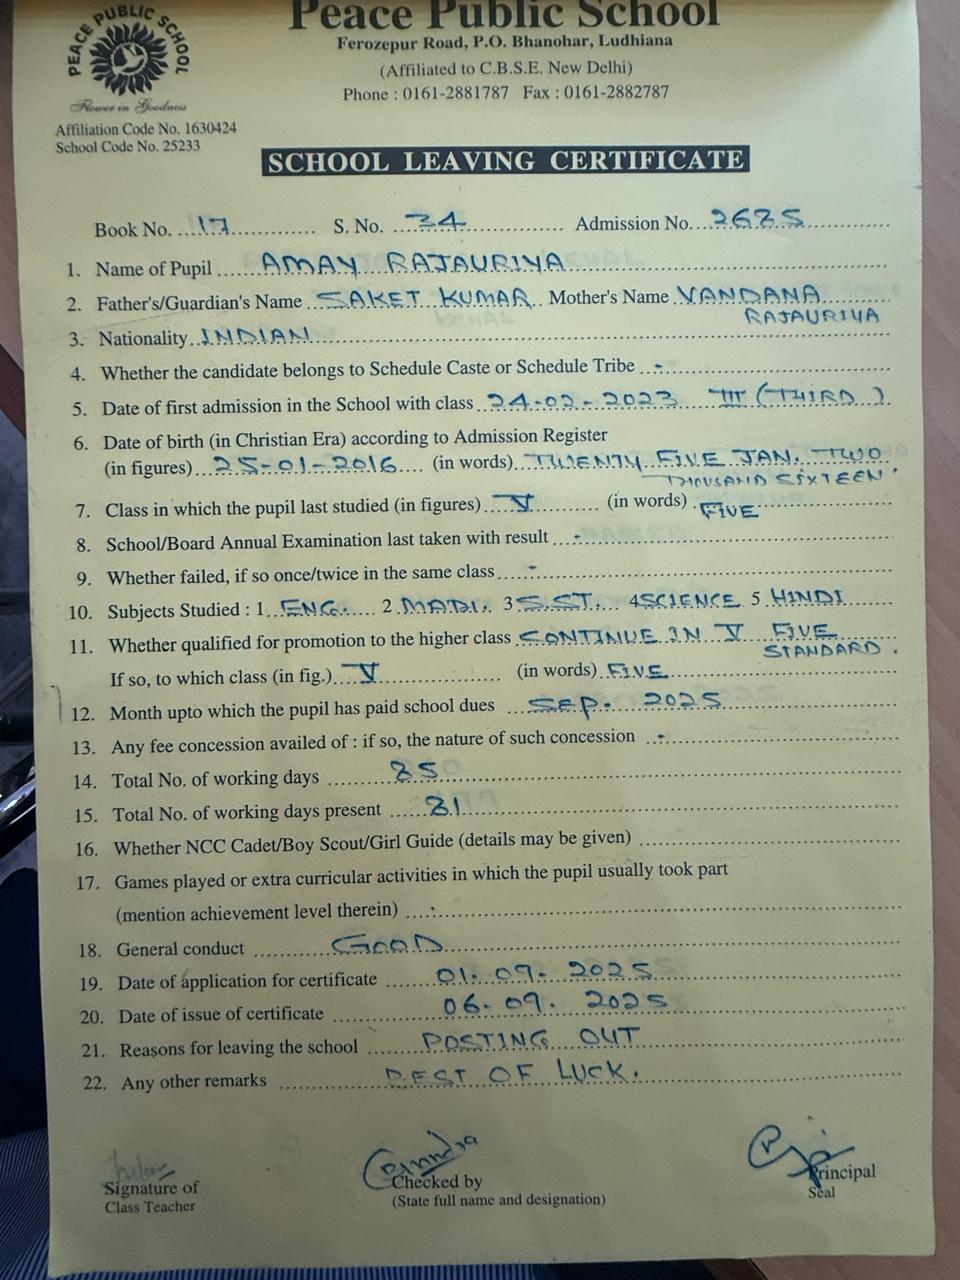 Peace Public School
PEACE PUBLIC SCHOOL
Ferozepur Road, P.O. Bhanohar, Ludhiana
(Affiliated to C.B.S.E. New Delhi)
Flower in Goodness
Phone : 0161-2881787 Fax : 0161-2882787
Affiliation Code No. 1630424
School Code No. 25233
SCHOOL LEAVING CERTIFICATE
Book No. 17 S. No. 34 Admission No. 2685
1. Name of Pupil AMAY RAJAURIYA
2. Father's/Guardian's Name SAKET KUMAR Mother's Name VANDANA
RAJAURIYA
3. Nationality INDIAN
4. Whether the candidate belongs to Schedule Caste or Schedule Tribe -
5. Date of first admission in the School with class 24-02-2023 III (THIRD)
6. Date of birth (in Christian Era) according to Admission Register
(in figures) 25-01-2016 (in words) TWENTY FIVE JAN. TWO
THOUSAND SIXTEEN
7. Class in which the pupil last studied (in figures) V (in words) FIVE
8. School/Board Annual Examination last taken with result -
9. Whether failed, if so once/twice in the same class -
10. Subjects Studied : 1 ENG. 2 3 S.ST. 4 SCIENCE 5 HINDI
11. Whether qualified for promotion to the higher class CONTINUE IN V FIVE
STANDARD.
If so, to which class (in fig.) V (in words) FIVE
12. Month upto which the pupil has paid school dues SEP. 2025
13. Any fee concession availed of : if so, the nature of such concession -
14. Total No. of working days 85
15. Total No. of working days present 81
16. Whether NCC Cadet/Boy Scout/Girl Guide (details may be given)
17. Games played or extra curricular activities in which the pupil usually took part
(mention achievement level therein) -
18. General conduct GOOD
19. Date of application for certificate 01.09.2025
20. Date of issue of certificate 06.09.2025
21. Reasons for leaving the school POSTING OUT
22. Any other remarks BEST OF LUCK.
Signature of
Class Teacher
Checked by
(State full name and designation)
Principal
Seal